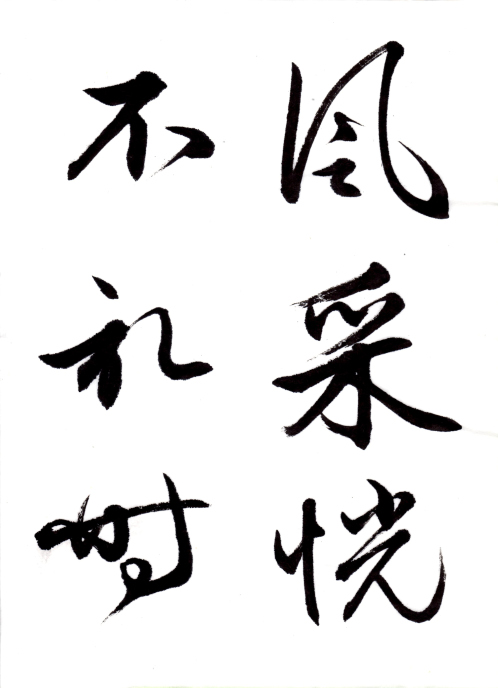 風采恍
不礼